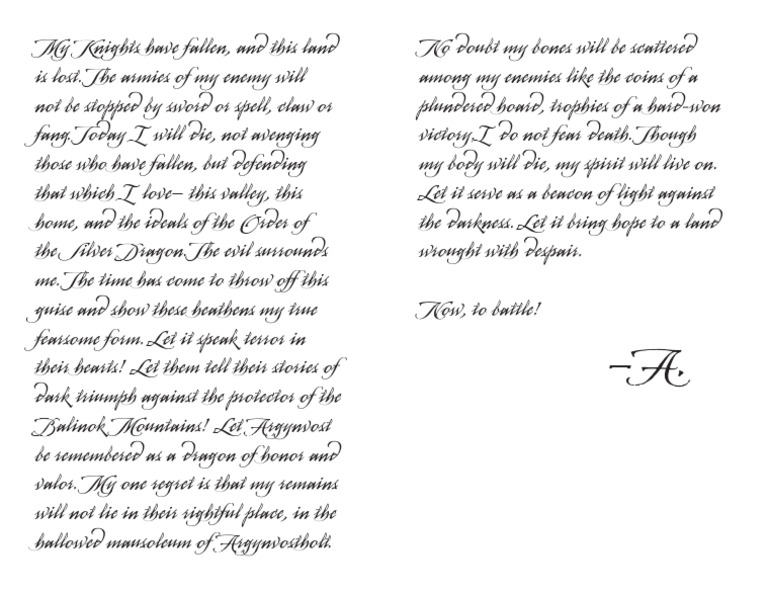 My Knights have fallen, and this land
is lost. The armies of my enemy will
not be stopped by sword or spell, claw or
fang. Today I will die, not avenging
those who have fallen, but defending
that which I love– this valley, this
home, and the ideals of the Order of
the Silver Dragon. The evil surrounds
me. The time has come to throw off this
guise and show these heathens my true
fearsome form. Let it speak terror in
their hearts! Let them tell their stories of
dark triumph against the protector of the
Balinok Mountains! Let Argynvost
be remembered as a dragon of honor and
valor. My one regret is that my remains
will not lie in their rightful place, in the
hallowed mausoleum of Argynvostholt.
No doubt my bones will be scattered
among my enemies like the coins of a
plundered hoard, trophies of a hard-won
victory. I do not fear death. Though
my body will die, my spirit will live on.
Let it serve as a beacon of light against
the darkness. Let it bring hope to a land
wrought with despair.
Now, to battle!
–A.